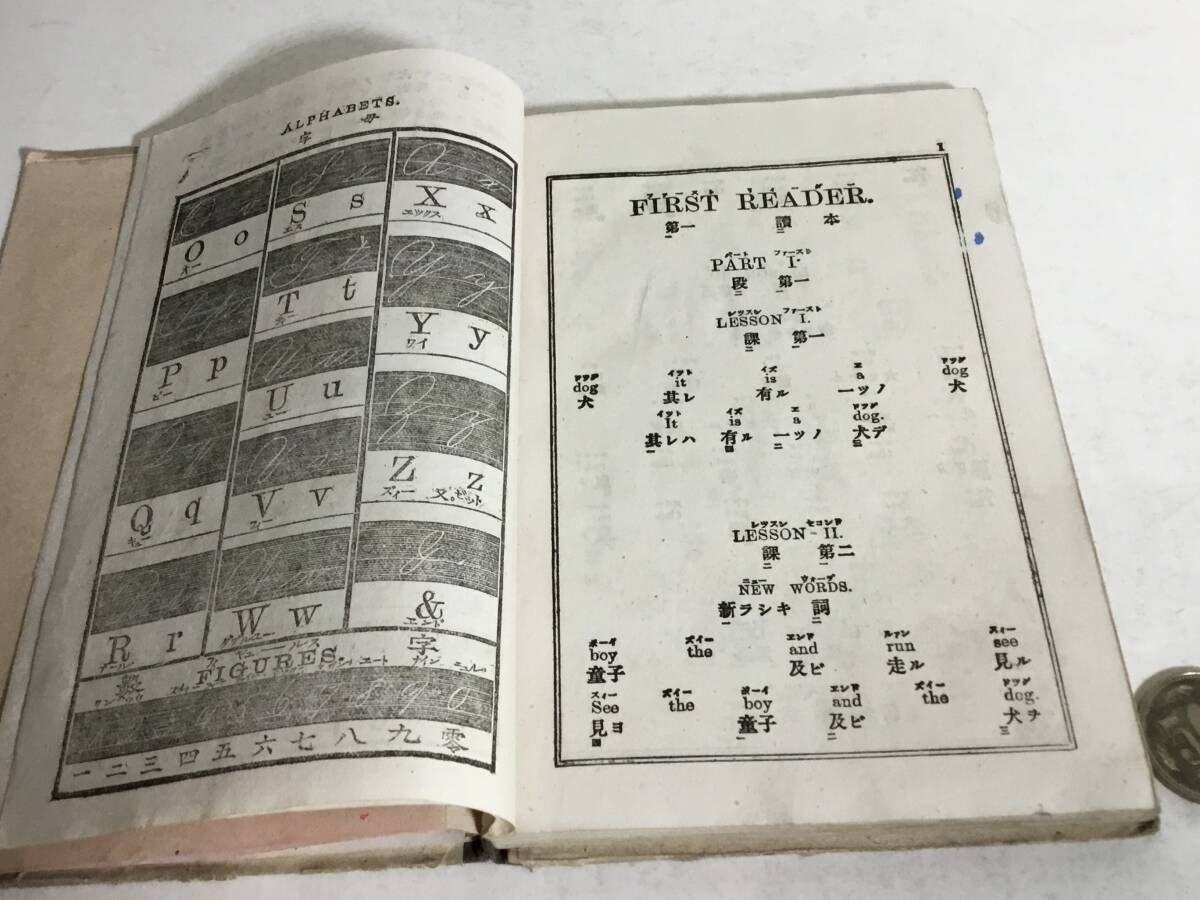 ALPHABETS.
字 母
O o
オー
S s
エス
X x
エックス
P p
ピー
T t
Y y
ワイ
Q q
キュー
U u
ユー
Z z
ズィー 又ゼット
R r
アール
V v
W w
&
エンド
數 FIGURES 字
一 二 三 四 五 六 七 八 九 零
1
FIRST READER.
第一 讀本
パート ファースト
PART I.
段 第一
レッスン ファースト
LESSON I.
課 第一
ドッグ イット イズ エ ドッグ
dog it is a dog
犬 其レ 有ル 一ツノ 犬
イット イズ エ ドッグ
It is a dog.
其レハ 有ル 一ツノ 犬デ
レッスン セコンド
LESSON II.
課 第二
ニュー ウォーヅ
NEW WORDS.
新ラシキ 詞
ボーイ ズィー エンド ルァン スィー
boy the and run see
童子 及ビ 走ル 見ル
スィー ズィー ボーイ エンド ズィー ドッグ
See the boy and the dog.
見ヨ 童子 及ビ 犬ヲ